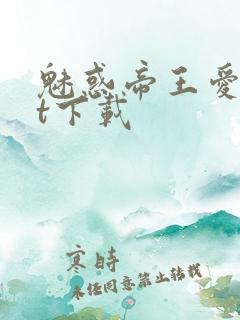 魅惑帝王爱
t下载
寒时
未经同意禁止转载